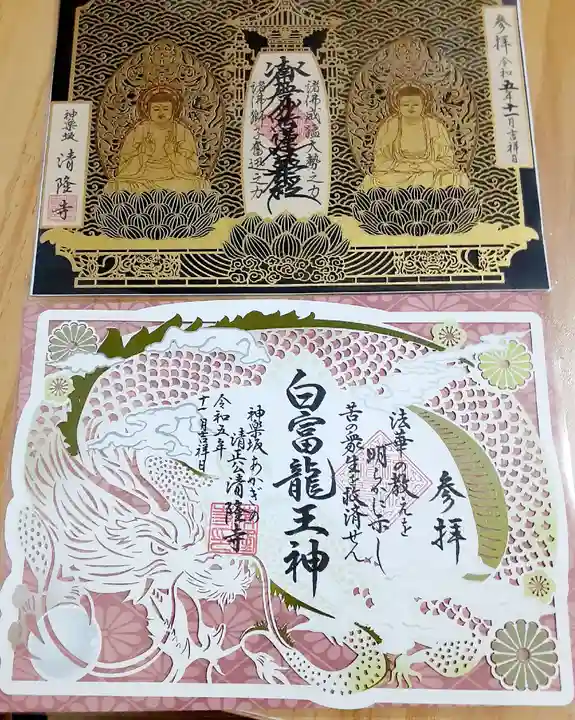 参拝
令和五年十一月吉祥日
諸佛威猛大勢之力
南無妙法蓮華経
諸佛獅子奮迅之力
神楽坂 清隆寺
参拝
法華の教えを
明らかに示し
苦の衆生を救済せん
白富龍王神
神楽坂あかぎの
清正公清隆寺
令和五年
十一月吉祥日